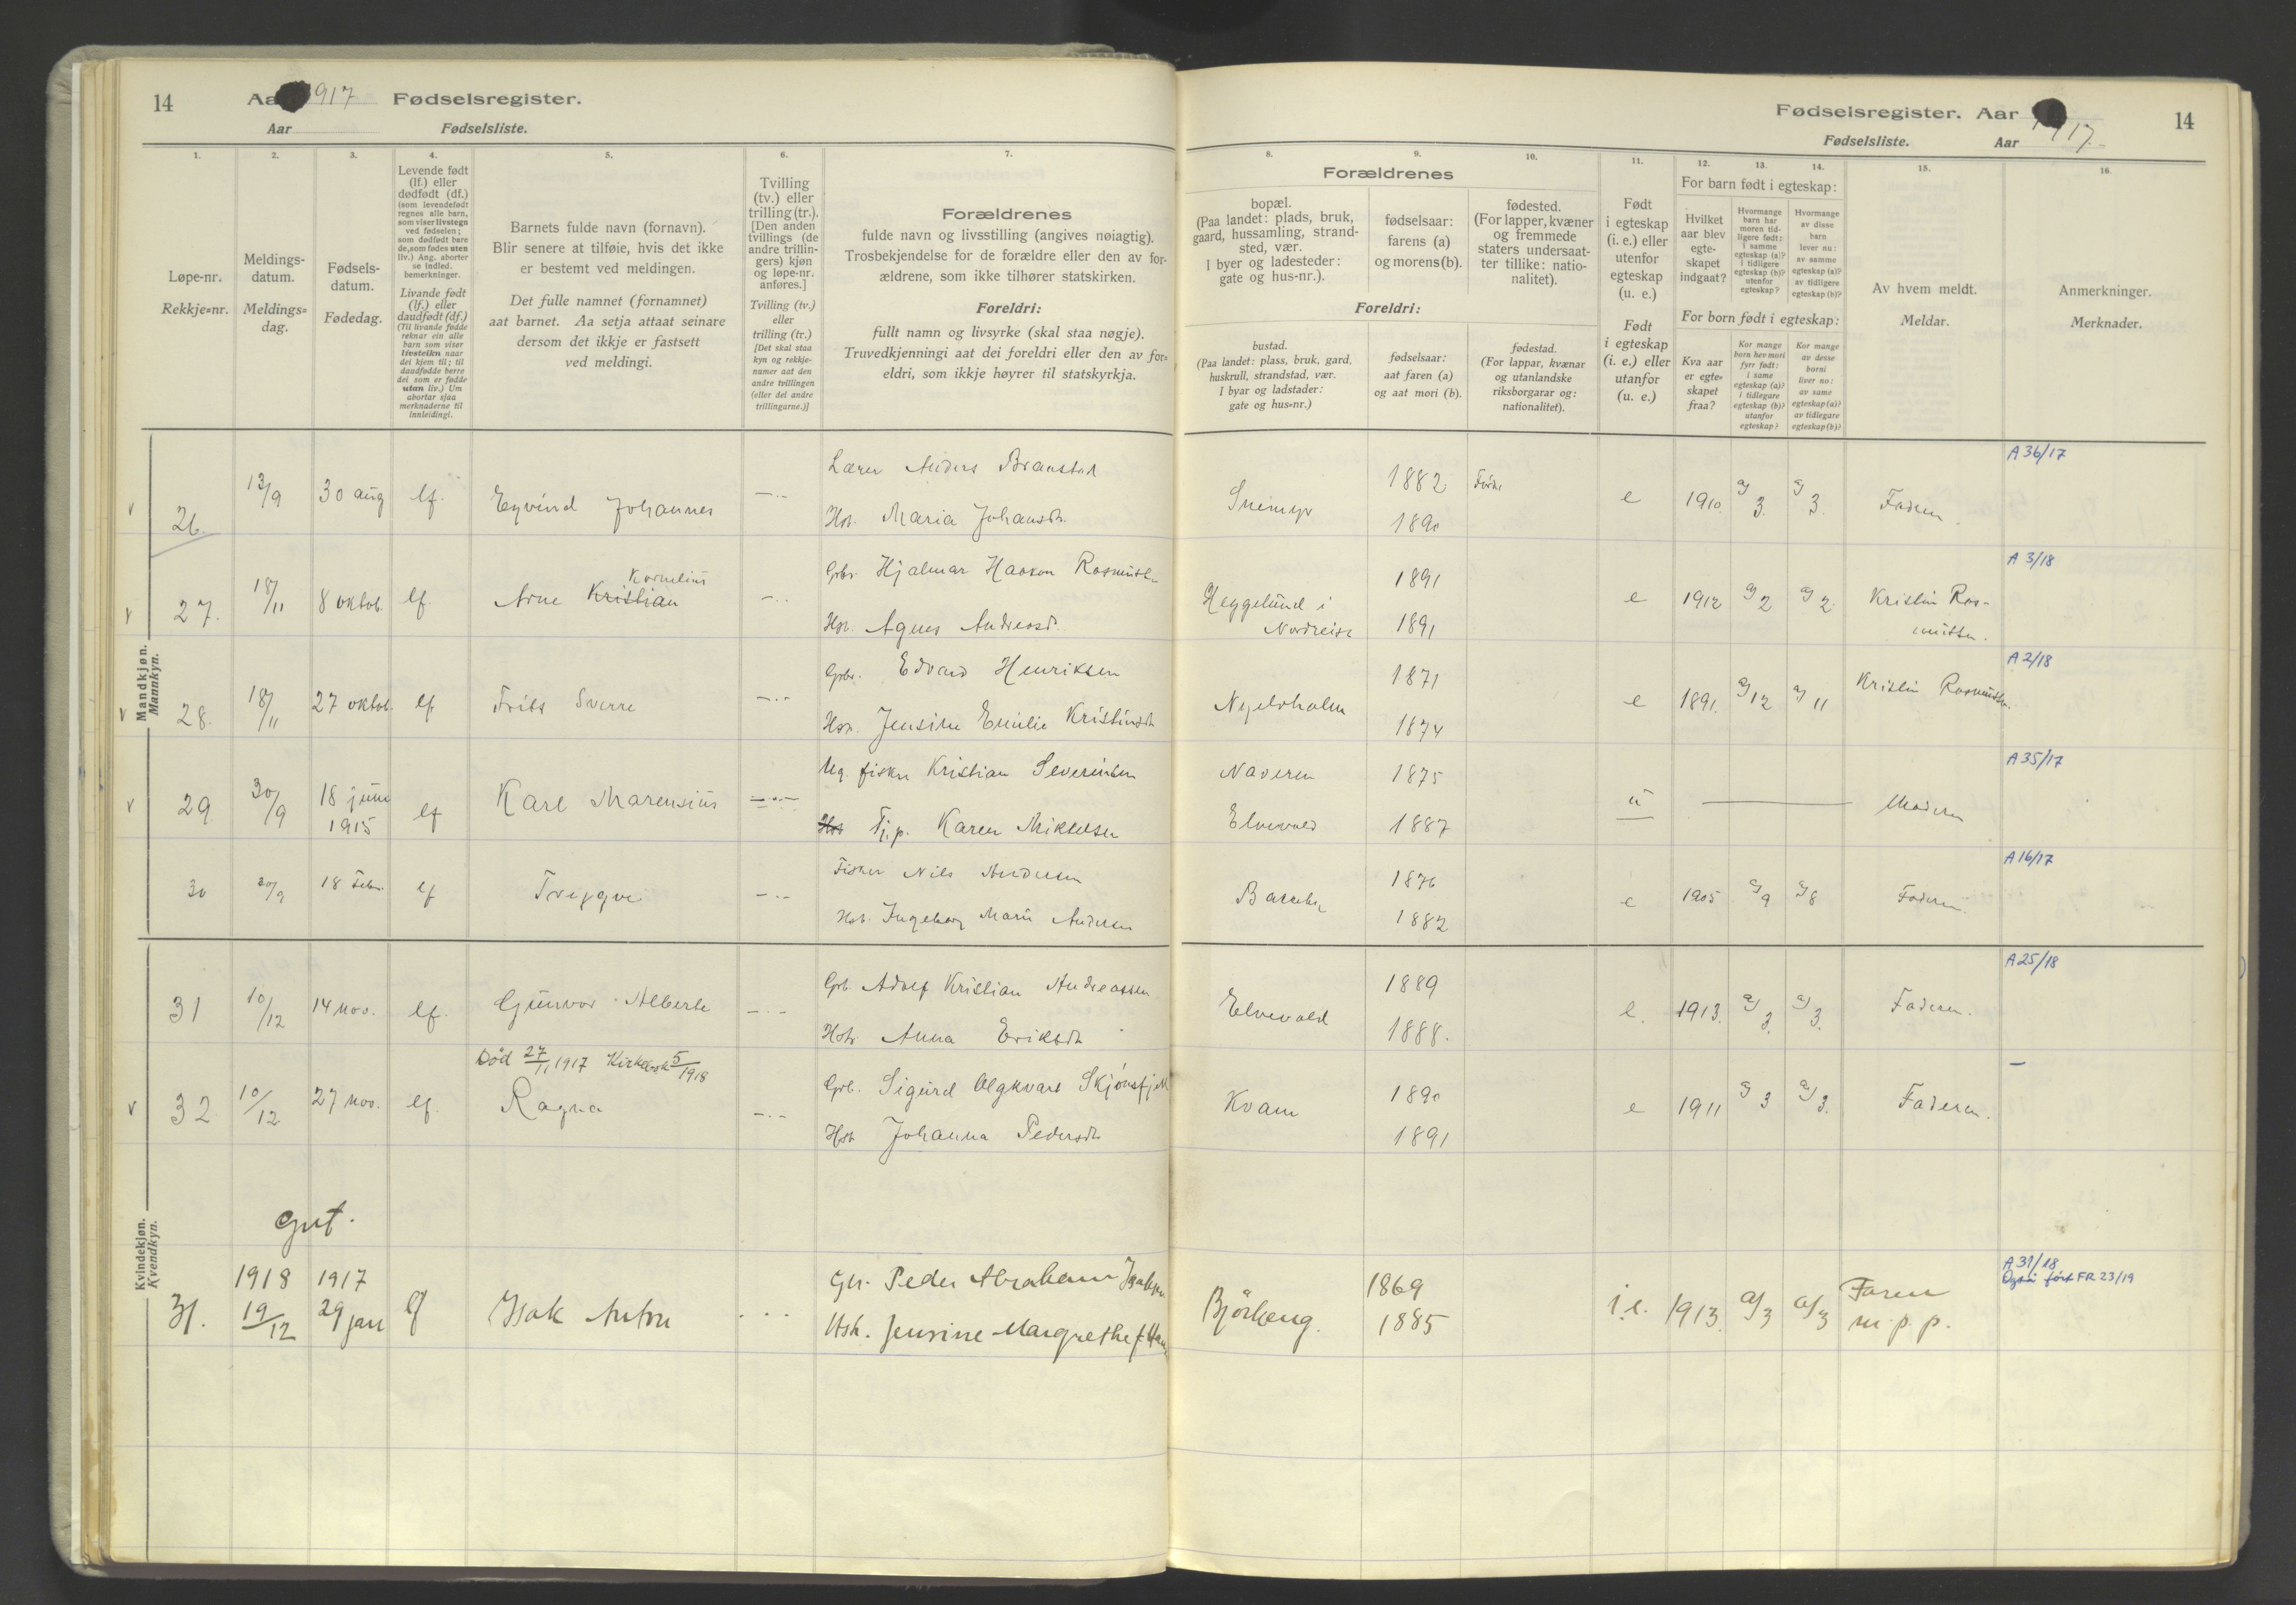 14
Aar 1917 Fødselsregister.
Aar Fødselsliste.
1. 2. 3. 4. 5. 6. 7.
Løpe-nr.
Rekkje-nr.
Meldings-
datum.
Meldings-
dag.
Fødsels-
datum.
Fødedag.
Levende født
(lf.) eller
dødfødt (df.)
(som levendefødt
regnes alle barn,
som viser livstegn
ved fødselen;
som dødfødt bare
de, som fødes uten
liv.) Ang. aborter
se indled.
bemerkninger.
Livande født
(lf.) eller
daudfødt (df.)
(Til livande fødde
reknar ein alle
barn som viser
livsteikn naar
dei kjem til; til
daudfødde berre
dei som er fødde
utan liv.) Um
abortar sjaa
merknaderne til
innleidingi.
Barnets fulde navn (fornavn).
Blir senere at tilføie, hvis det ikke
er bestemt ved meldingen.
Det fulle namnet (fornamnet)
aat barnet. Aa setja attaat seinare
dersom det ikkje er fastsett
ved meldingi.
Tvilling
(tv.) eller
trilling (tr.).
[Den anden
tvillings (de
andre trillin-
gers) kjøn
og løpe-nr.
anføres.]
Tvilling (tv.)
eller
trilling (tr.)
[Det skal staa
kyn og rekkje-
numer aat den
andre tvillingen
(eller dei andre
trillingarne.)]
Forældrenes
fulde navn og livsstilling (angives nøiagtig).
Trosbekjendelse for de forældre eller den av for-
ældrene, som ikke tilhører statskirken.
Foreldri:
fullt namn og livsyrke (skal staa nøgje).
Truvedkjenningi aat dei foreldri eller den av for-
eldri, som ikkje høyrer til statskyrkja.
Mandkjøn.
Mannkyn.
26. 13/9 30 aug lf. Eyvind Johannes
Lærer Anders Branstad
Hst. Maria Johansdr.
27. 18/11 8 oktob. lf Arne Kristian Kornelius
Gbr. Hjalmar Haakon Rasmussen
Hst. Agnes Andreasd.
28. 18/11 27 oktob. lf Frits Sverre
Gbr. Edvard Henriksen
Hst. Jensine Emilie Kristinsdr
29. 30/9 18 juni 1915 lf Karl Marensius
Ug. fisker Kristian Severinsen
Hst Tj.p. Karen Mikkelsen
30 30/9 18 Febr. lf Trygve
Fisker Nils Andersen
Hst. Ingeborg Marie Andersen
Kvindekjøn.
Kvendkyn.
31 10/12 14 nov. lf. Gunvor Alberte
Gb. Adolf Kristian Andreassen
Hst. Anna Eriksdr
Død 27/11 1917 5/1918
32. 10/12 27 nov. lf. Ragna
Gb. Sigurd Skjønsfjell
Hst Johanna Pedersdr
Gut.
31. 1918 19/12 1917 29 jan lf Isak Anton
Gbr. Peder Abraham Isaksen
Hst. Jensine Margrethe f. Hans
Fødselsregister. Aar 1917. 14
Fødselsliste. Aar
8. 9. 10. 11. 12. 13. 14. 15. 16.
Forældrenes
bopæl.
(Paa landet: plads, bruk,
gaard, hussamling, strand-
sted, vær.
I byer og ladesteder:
gate og hus-nr.).
fødselsaar:
farens (a)
og morens (b).
fødested.
(For lapper, kvæner
og fremmede
staters undersaat-
ter tillike: natio-
nalitet).
Foreldri:
bustad.
(Paa landet: plass, bruk, gard,
huskrull, strandstad, vær.
I byar og ladstader:
gate og hus-nr.)
fødselsaar:
aat faren (a)
og aat mori (b).
fødestad.
(For lappar, kvænar
og utanlandske
riksborgarar og:
nationalitet).
Født
i egteskap
(i. e.) eller
utenfor
egteskap
(u. e.)
Født
i egteskap
(i. e.) eller
utanfor
(u. e.)
For barn født i egteskap:
Hvilket
aar blev
egte-
skapet
indgaat?
Hvormange
barn har
moren tid-
ligere født:
i samme
egteskap (a)?
i tidligere
egteskap (b)?
utenfor
egteskap?
Hvormange
av disse
barn
lever nu:
av samme
egteskap (a)?
av tidligere
egteskap (b)?
For born født i egteskap:
Kva aar
er egte-
skapet
fraa?
Kor mange
born hev mori
fyrr født:
i same
egteskap (a)?
i tidlegare
egteskap (b)?
utanfor
egteskap?
Kor mange
av desse
borni
liver no:
av same
egteskap (a)?
av tidlegare
egteskap (b)?
Av hvem meldt.
Meldar.
Anmerkninger.
Merknader.
Snemyr 1882 1890 e 1910. a/3. a/3. Faderen. A 36/17
Heggelund i Nordreisa 1891 1891 e 1912 a/2 a/2. Kristin Ras-
mussen. A 3/18
Nyelvholm 1871 1874 e 1891. a/12 a/11 Kristin Rasmussen. A 2/18
Naveren 1875
Elvevold 1887 u Moderen A 35/17
1876 1882 e 1905 a/9 a/8 Faderen. A 16/17
Elvevold 1889 1888. e. 1913. a/3. a/3. Faderen. A 25/18
Kvam 1890 1891 e 1911 a/3 a/3. Faderen. –
Bjørkeng. 1869 1885 i.e. 1913. a/3 a/3 Faren
m.p.p. A 31/18
Også ført FR 23/19